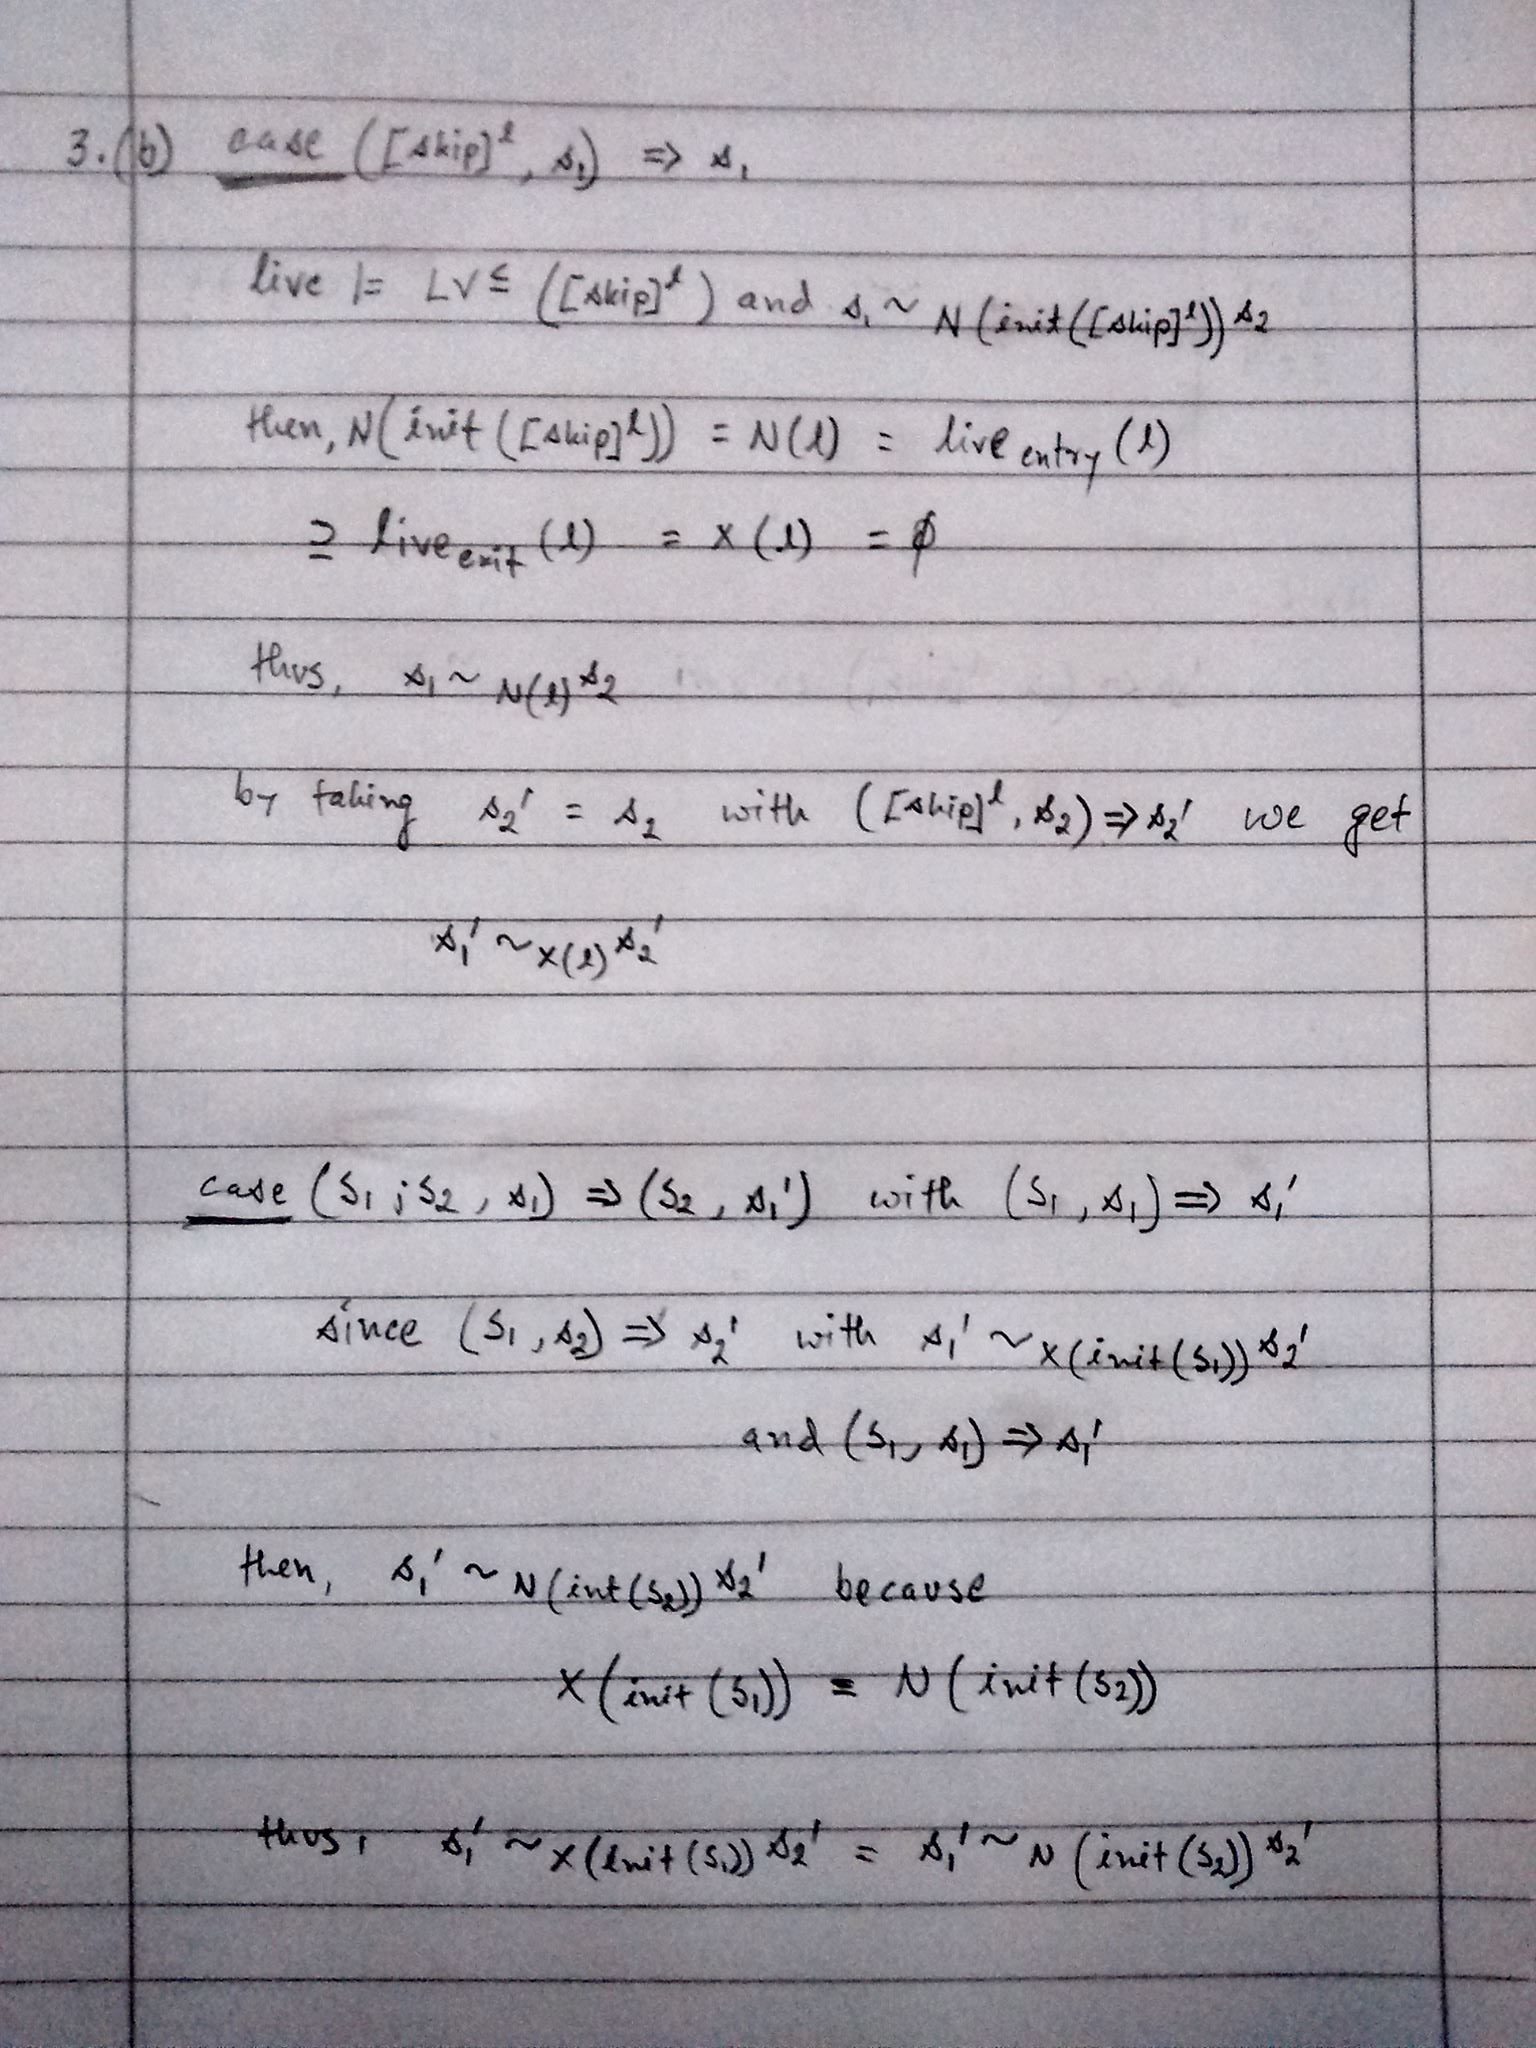 3.(b) case ([skip]ˡ, s₁) ⇒ s₁
live ⊨ LV⊆ ([skip]ˡ) and s₁ ~ N(init([skip]ˡ)) s₂
then, N(init([skip]ˡ)) = N(l) = live entry (l)
⊇ live exit (l) = X(l) = ∅
thus, s₁ ~ N(l) s₂
by taking s₂' = s₂ with ([skip]ˡ, s₂) ⇒ s₂' we get
s₁' ~ X(l) s₂'
case (S₁ ; S₂, s₁) ⇒ (S₂, s₁') with (S₁, s₁) ⇒ s₁'
since (S₁, s₂) ⇒ s₂' with s₁' ~ X(init(S₁)) s₂'
and (S₁, s₁) ⇒ s₁'
then, s₁' ~ N(int(S₂)) s₂' because
X(init(S₁)) = N(init(S₂))
thus, s₁' ~ X(init(S₁)) s₂' = s₁' ~ N(init(S₂)) s₂'